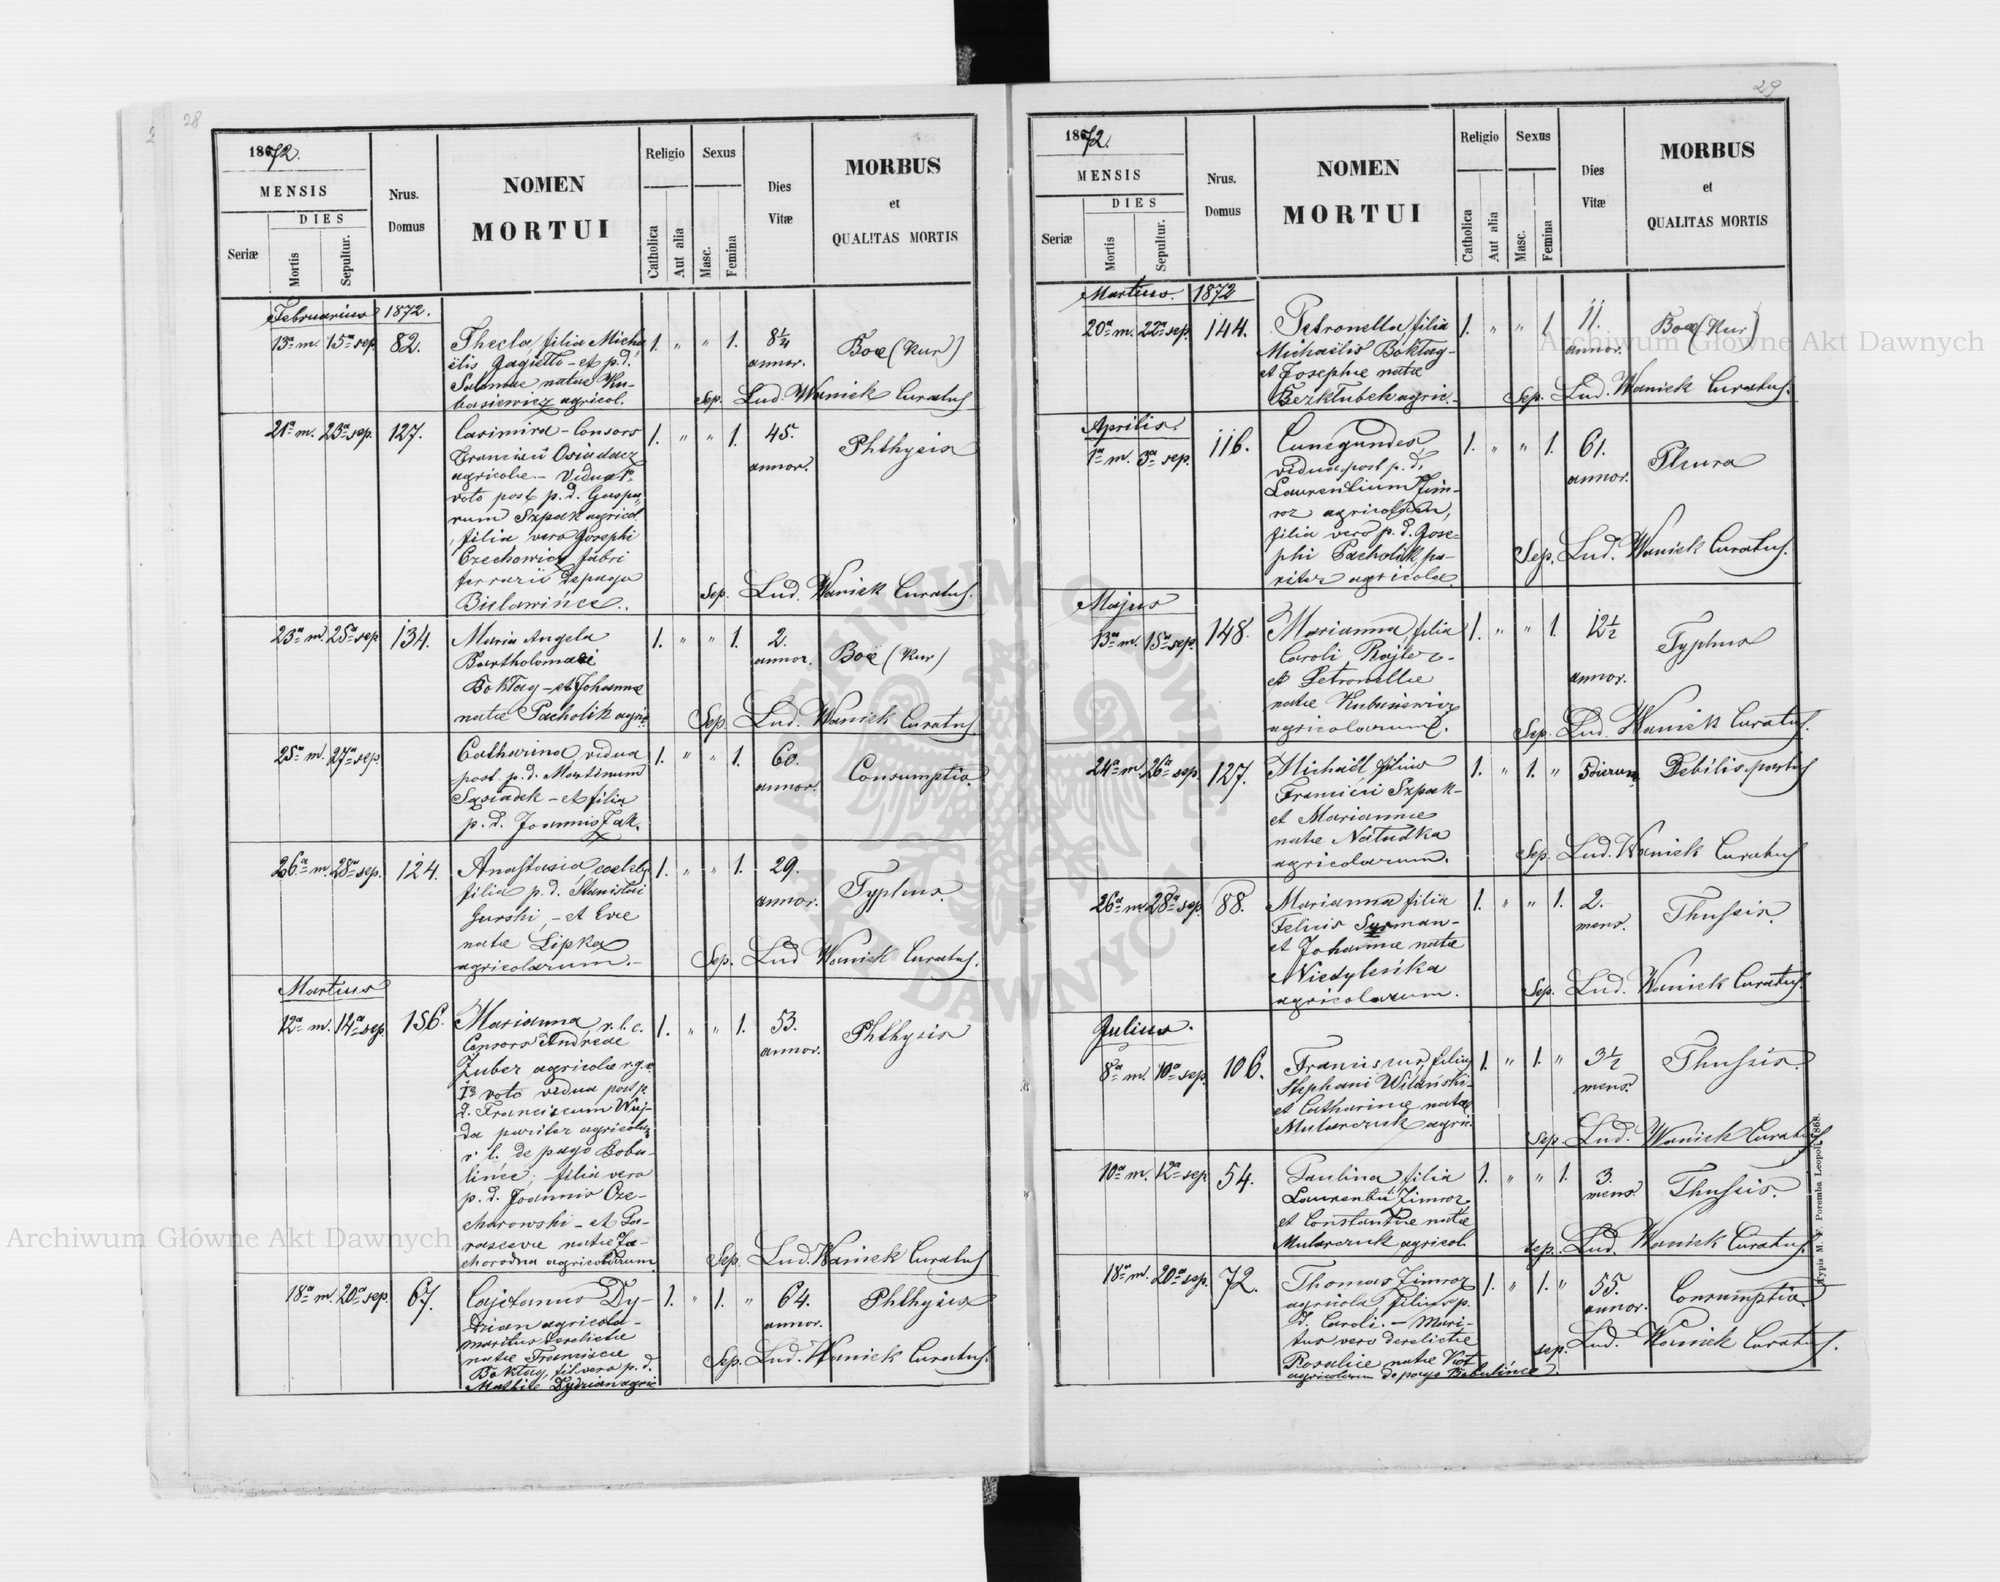 28
1872.
MENSIS
DIES
Seriæ
Mortis
Sepultur.
Nrus.
Domus
NOMEN
MORTUI
Religio
Catholica
Aut alia
Sexus
Masc.
Femina
Dies
Vitæ
MORBUS
et
QUALITAS MORTIS
Februarius 1872.
13a m. 15a sep. 82. Thecla, filia Micha 1. " " 1. 8 1/4 annor. Boa (Kur)
ëlis Jagiełło - et p. d.
Salomae natae Ku-
basiewicz agricol. Sep. Lud. Waniek Curatus
21a m. 23a sep. 127. Casimira - Consors 1. " " 1. 45. annor. Phthysis
Francisci Osiadacz
agricolae - Vidua 1o
voto post p. d. Gaspa-
rum Szpak agricol.
filia vero Josephi
Czechowicz fabri
ferrarii de pago
Bieławińce. Sep. Lud. Waniek Curatus.
23a m. 25a sep. 134. Maria Angela 1. " " 1. 2. annor. Boa (Kur)
Bartholomaei
Boktag - et Johannae
natae Pacholik agric. Sep. Lud. Waniek Curatus.
25a m. 27a sep. Catharina vidua 1. " " 1. 60. annor. Consumptio
post p. d. Martinum
Sąsiadek - et filia
p. d. Joannis Żak.
26a m. 28a sep. 124. Anastasia, coelebs 1. " " 1. 29. annor. Typhus.
filia p. d. Stanislai
Gurski, - et Evae
natae Lipka
agricolarum. - Sep. Lud Waniek Curatus.
Martius
12a m. 14a sep. 156. Marianna r. l. c. 1. " " 1. 53. annor. Phthysis
Consors Andreae
Zuber agricolae r. g. c.
1o voto vidua post p.
d. Franciscum Woj-
da pariter agricolam
r. l. de pago Bobu-
lińce; - filia vero
p. d. Joannis Cze-
charowski - et Pa-
rascevae natae Za-
horodna agricolarum. Sep. Lud. Waniek Curatus
18a m. 20a sep. 67. Cajetanus Dy- 1. " 1. " 64. annor. Phthysis
drian agricola -
maritus derelictae
natae Franciscae
Boktag, fil. vero p. d.
Mathiae Dydrian agric. Sep. Lud. Waniek Curatus.
29
1872.
MENSIS
DIES
Seriæ
Mortis
Sepultur.
Nrus.
Domus
NOMEN
MORTUI
Religio
Catholica
Aut alia
Sexus
Masc.
Femina
Dies
Vitæ
MORBUS
et
QUALITAS MORTIS
Martius. 1872
20a m. 22a sep. 144. Petronella, filia 1. " " 1. 11. annor. Boa (Kur)
Michaëlis Boktag -
et Josephae natae
Bezkłubek agric. - Sep. Lud. Waniek Curatus.
Aprilis.
1a m. 3a sep. 116. Cunegundes, 1. " " 1. 61. annor. Pleura
vidua post p. d.
Laurentium Zim-
roz agricolam,
filia vero p. d. Jose-
phi Pacholik, pa-
riter agricolae. Sep. Lud. Waniek Curatus.
Majus
13a m. 15a sep. 148. Marianna, filia 1. " " 1. 12 1/2 annor. Typhus
Caroli Rajter -
et Petronellae
natae Kubasiewicz
agricolarum. Sep. Lud. Waniek Curatus.
24a m. 26a sep. 127. Michaël, filius 1. " 1. " 3 dierum Debilis partus
Francisci Szpak -
et Mariannae
natae Natudka
agricolarum. Sep. Lud. Waniek Curatus
26a m. 28a sep. 88. Marianna filia 1. " " 1. 2. mens. Thussis.
Felicis Surman -
et Johannae natae
Niedyleńka
agricolarum. Sep. Lud. Waniek Curatus.
Julius.
8a m. 10a sep. 106. Franciscus, filius 1. " 1. " 3 1/2 mens. Thussis.
Stephani Wilański -
et Catharinae natae
Mularczuk agric. Sep. Lud. Waniek Curatus
10a m. 12a sep 54. Paulina filia 1. " " 1. 3. mens. Thussis.
Laurentii Zimroz
et Constantiae natae
Mularczuk agricol. sep. Lud. Waniek Curatus.
18a m. 20a sep. 72. Thomas Zimroz 1. " 1. " 55. annor. Consumptio
agricola, filius p.
d. Caroli. - Mari-
tus vero derelictae
Rosaliae natae
agricolarum de pago Bobulińce. sep. Lud. Waniek Curatus.
Typis M. F. Poremba Leopoli 1868.
Archiwum Główne Akt Dawnych
Archiwum Główne Akt Dawnych
ARCHIWUM GŁÓWNE AKT DAWNYCH